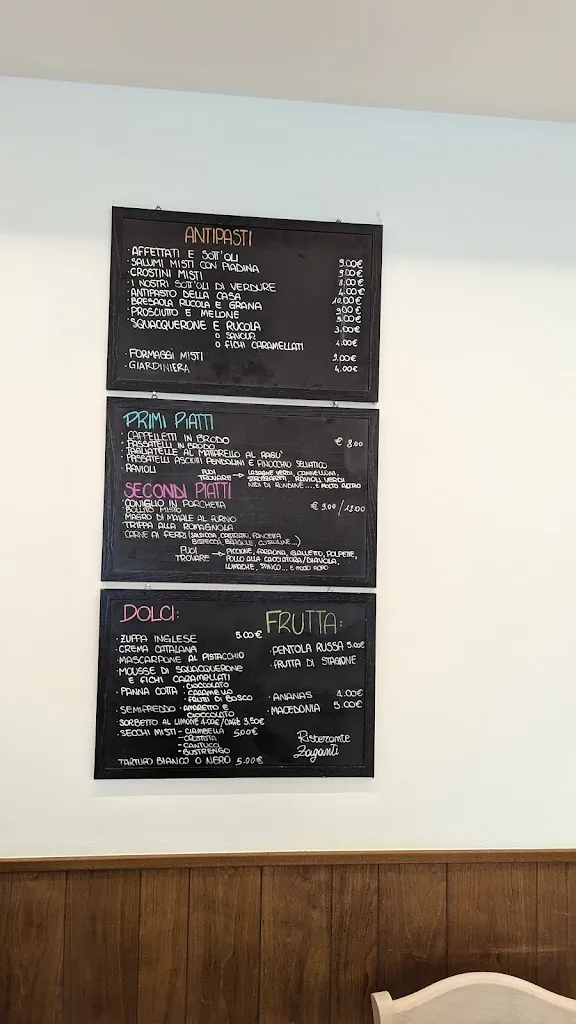 ANTIPASTI
· AFFETTATI E SOTT'OLI 9.00€
· SALUMI MISTI CON PIADINA 9.00€
· CROSTINI MISTI 8.00€
· I NOSTRI SOTT'OLI DI VERDURE 4.00€
· ANTIPASTO DELLA CASA 10.00€
· BRESAOLA RUCOLA E GRANA 9.00€
· PROSCIUTTO E MELONE 9.00€
· SQUACQUERONE E RUCOLA 3.00€
O SAVOUR
O FICHI CARAMELLATI 4.00€
· FORMAGGI MISTI 9.00€
· GIARDINIERA 4.00€
PRIMI PIATTI
· CAPPELLETTI IN BRODO € 8,00
· PASSATELLI IN BRODO
· TAGLIATELLE AL MATTARELLO AL RAGU'
· PASSATELLI ASCIUTTI PENDOLINI E FINOCCHIO SELVATICO
· RAVIOLI
PUOI TROVARE → LASAGNE VERDI, CANNELLONI,
STROZZAPRETI, RAVIOLI VERDI
NIDI DI RONDINE.... E MOLTO ALTRO
SECONDI PIATTI
· CONIGLIO IN PORCHETTA € 9,00 / 13.00
· BOLLITO MISTO
· MAGRO DI MAIALE AL FORNO
· TRIPPA ALLA ROMAGNOLA
CARNE AI FERRI (SALSICCIA, CASTRATO, PANCETTA
BISTECCA, BRACIOLE, COSTOLINE...)
PUOI TROVARE → PICCIONE, FARAONA, GALLETTO, POLPETTE,
POLLO ALLA CACCIATORA/DIAVOLA,
LUMACHE, STINCO... E MOLTO ALTRO
DOLCI:
· ZUPPA INGLESE 5.00€
· CREMA CATALANA
· MASCARPONE AL PISTACCHIO
· MOUSSE DI SQUACQUERONE
E FICHI CARAMELLATI
· PANNA COTTA · CIOCCOLATO
· CARAMELLO
· FRUTTI DI BOSCO
· SEMIFREDDO · AMARETTO E
CIOCCOLATO
SORBETTO AL LIMONE 4.00€/CAFFÈ 3.50€
· SECCHI MISTI - CIAMBELLA 5,00€
- CROSTATA
- CANTUCCI
- BUSTRENGO
TARTUFO BIANCO O NERO 5.00€
FRUTTA:
· PENTOLA RUSSA 5.00€
· FRUTTA DI STAGIONE
· ANANAS 4.00€
· MACEDONIA 5.00€
Ristorante
Zaganti